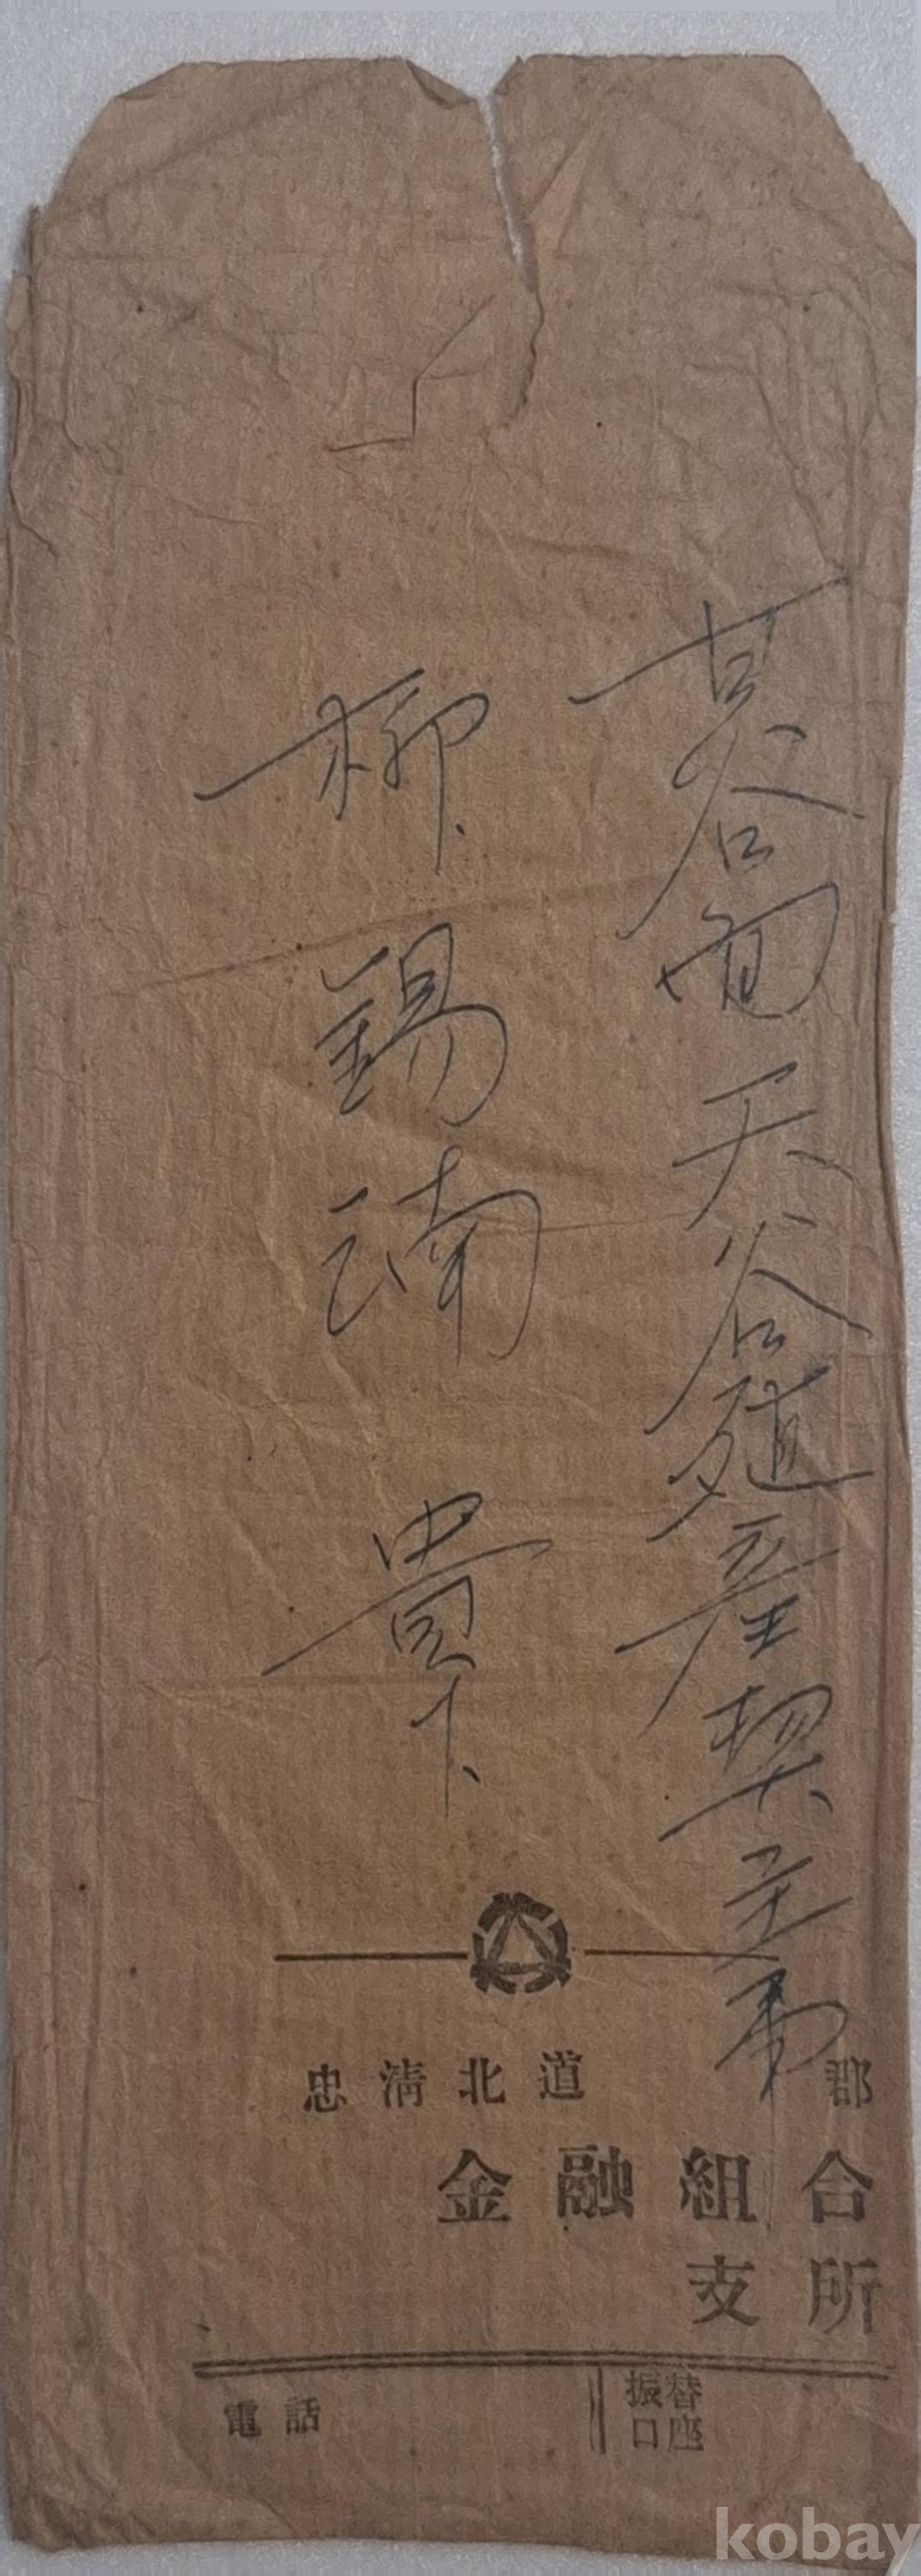 甘谷面 天谷殖産契主事
柳錫湳 貴下
忠清北道 郡
金融組合
支所
電話
振替
口座
kobay